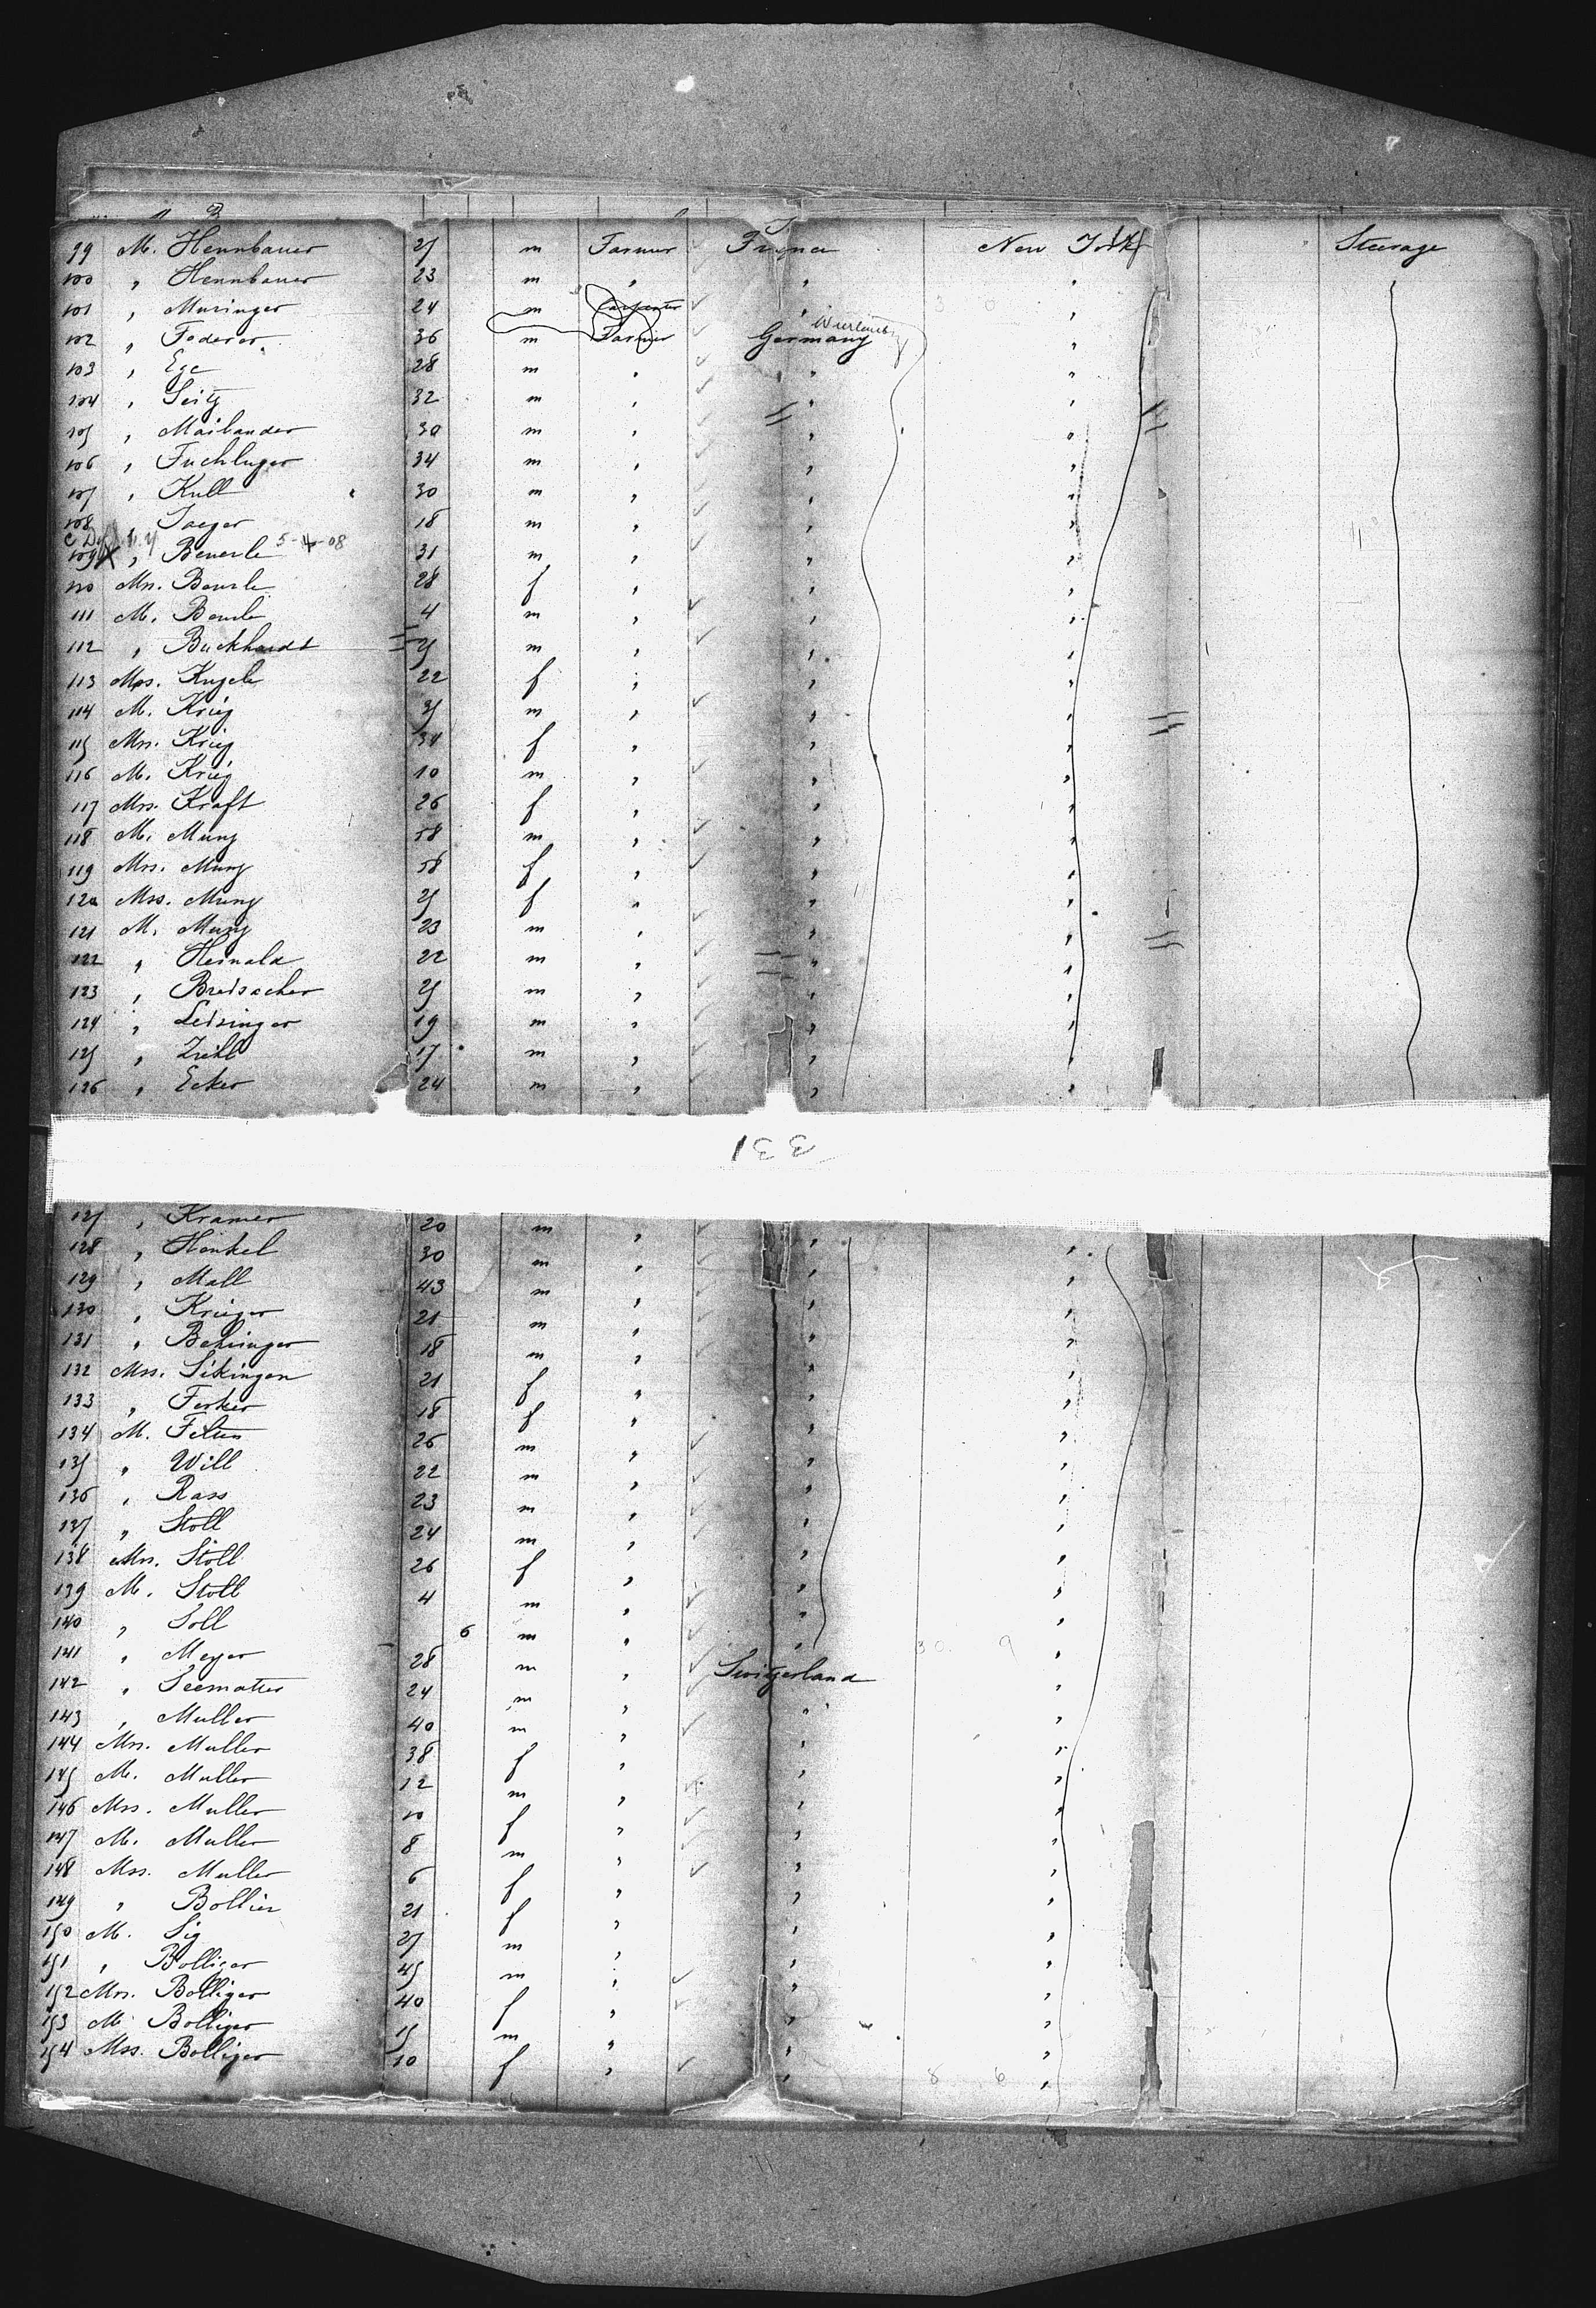 99 M. Hennbauer 27 m Farmer France New York Steerage
100 " Hennbauer 23 m " " "
101 " Muringer 24 m Carpenter " "
102 " Federer 36 m Farmer Germany "
103 " Ege 28 m " " "
104 " Seitz 32 m " " "
105 " Mailander 30 m " " "
106 " 34 m " " "
107 " Kull 30 m " " "
108 " Jaeger 18 m " " "
5-4-08
109 " Beuerle 31 m " " "
110 Mrs. Beuerle 28 f " " "
111 M. Beuerle 4 m " " "
112 " Buckhardt m " " "
113 Mss. Kugele 22 f " " "
114 M. Krieg m " " "
115 Mrs. Krieg 34 f " " "
116 M. Krieg 10 m " " "
117 Mrs. Kraft 26 f " " "
118 M. Munz 58 m " " "
119 Mrs. Munz 58 f " " "
120 Mss. Munz f " " "
121 M. Munz 23 m " " "
122 " 22 m " " "
123 " Breisacher m " " "
124 " Leisinger 19 m " " "
125 " 17 m " " "
126 " Ecker 24 m " " "
133
127 " Kramer 20 m " "
128 " Henkel 30 m " " "
129 " Mall 43 m " " "
130 " Krieger 21 m " " "
131 " Behringer 18 m " " "
132 Mss. Sikingen 21 f " " "
133 " Ferker 18 f " " "
134 M. Felten 26 m " " "
135 " Will 22 m " " "
136 " Rass 23 m " " "
137 " Stoll 24 m " " "
138 Mrs. Stoll 26 f " " "
139 M. Stoll 4 m " " "
140 " Soll 6 m " " "
141 " Meyer 28 m " Switzerland "
142 " Seematter 24 m " " "
143 " Muller 40 m " " "
144 Mrs. Muller 38 f " " "
145 M. Muller 12 m " " "
146 Mss. Muller 10 f " " "
147 M. Muller 8 m " " "
148 Mss. Muller 6 f " " "
149 " Bollier 21 f " " "
150 M. Sig 27 m " " "
151 " Bolliger 45 m " " "
152 Mrs. Bolliger 40 f " " "
153 M. Bolliger 15 m " " "
154 Mss. Bolliger 10 f " " "